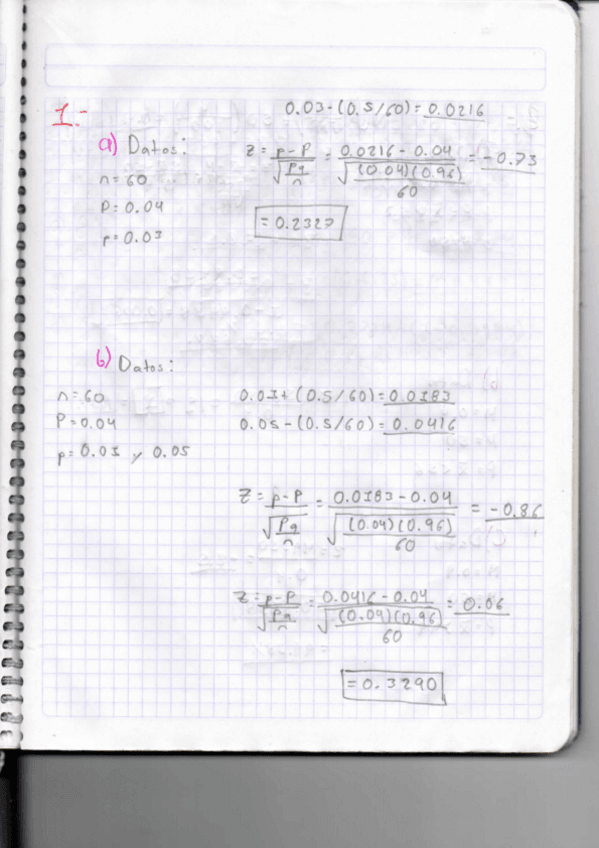 0.03-(0.5/60)=0.0216
1.-
a) Datos:
z = p-P/√(Pq/n) = 0.0216-0.04/√((0.04)(0.96)/60) = -0.73
n=60
P=0.04
p=0.03
=0.2327
b) Datos:
n=60
P=0.04
p=0.01 y 0.05
0.01+(0.5/60)=0.0183
0.05-(0.5/60)=0.0416
Z = p-P/√(Pq/n) = 0.0183-0.04/√((0.04)(0.96)/60) = -0.86
Z = p-P/√(Pq/n) = 0.0416-0.04/√((0.04)(0.96)/60) = 0.06
=0.3290